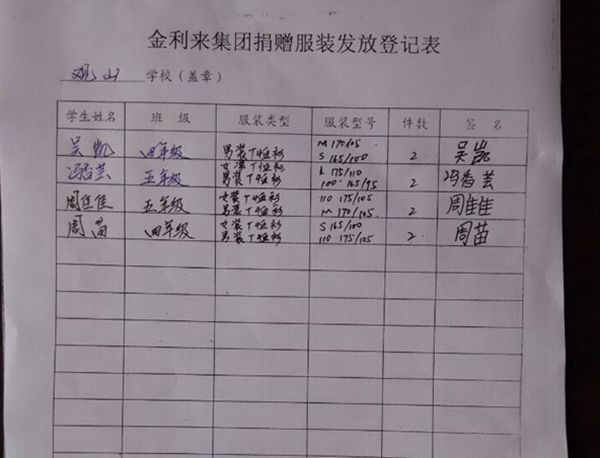 金利来集团捐赠服装发放登记表
观山 学校（盖章）
学生姓名 班 级 服装类型 服装型号 件数 签 名
M 170/105
吴凯 四年级 男装T恤衫 S 165/100 2 吴凯
女装T恤衫 L 175/110
冯香芸 五年级 男装T恤衫 100·165/95 2 冯香芸
女装T恤衫 110 175/105
周佳佳 五年级 男装T恤衫 M 170/105. 2 周佳佳
女装T恤衫 S 165/100
周苗 四年级 男装T恤衫 110 175/105 2. 周苗